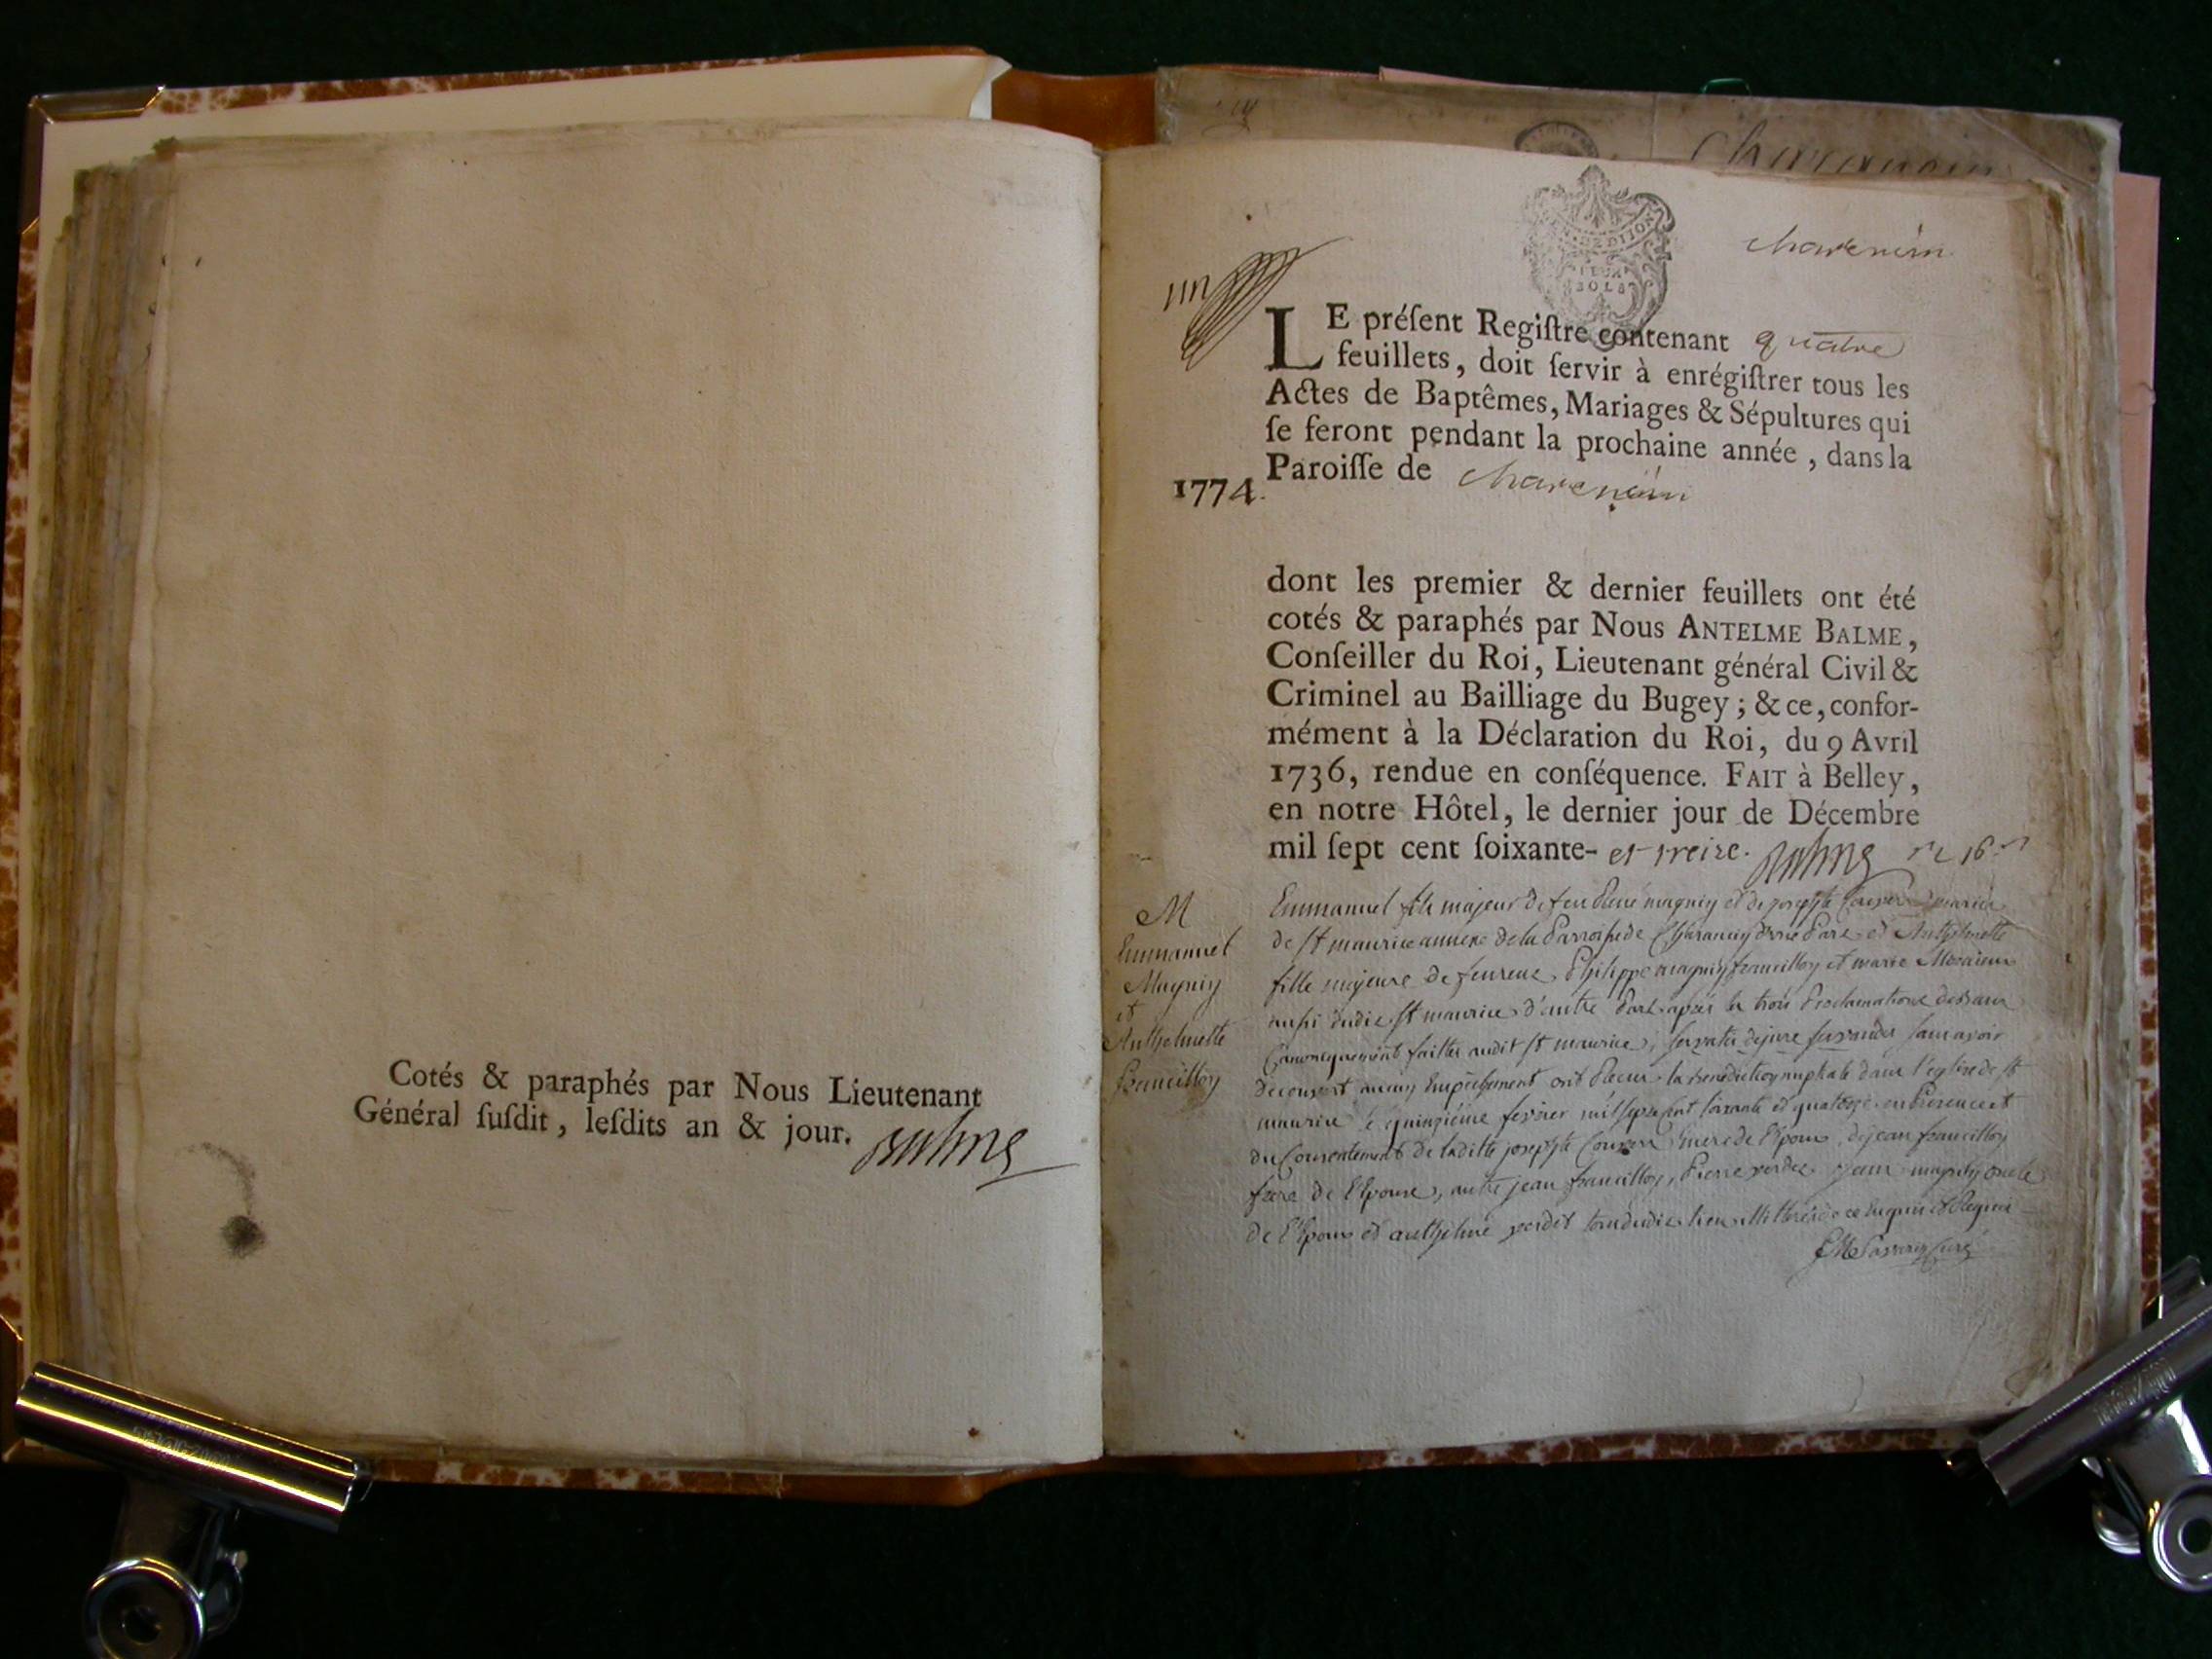 Cotés & paraphés par Nous Lieutenant
Général ſuſdit, leſdits an & jour. Balme
charencin
GEN. DE DIJON
DEUX
SOLS
un
charencin
LE préſent Regiſtre contenant quatre
feuillets, doit ſervir à enrégiſtrer tous les
Actes de Baptêmes, Mariages & Sépultures qui
ſe feront pendant la prochaine année, dans la
Paroiſſe de charencin
1774.
dont les premier & dernier feuillets ont été
cotés & paraphés par Nous ANTELME BALME,
Conſeiller du Roi, Lieutenant général Civil &
Criminel au Bailliage du Bugey; & ce, confor-
mément à la Déclaration du Roi, du 9 Avril
1736, rendue en conſéquence. FAIT à Belley,
en notre Hôtel, le dernier jour de Décembre
mil ſept cent ſoixante- et treize. Balme
M
Emmanuel
Magnin
et
Anthelmette
francillon
Emmanuel fils majeur de feu René magnin et de josephte
de st maurice annexe de la Parroisse de Charancin d'une Part et Anthelmette
fille majeure de feu Philippe magnin francillon et marie
aussi dudit st maurice d'autre Part après les trois Proclamations
Canoniquement faittes audit st maurice, servatis de jure servandis sans avoir
decouvert aucun Empêchement ont Recu la benediction nuptiale dans l'eglise de st
maurice le quinzième fevrier mil sept cent soixante et quatorze en Presence et
du Consentement de laditte josephte mere de l'Epoux, de jean francillon
frere de l'Epouse, autre jean francillon, Pierre jean magnin oncle
de l'Epoux et anthelme tous dudit lieu illitterés de ce enquis et Requis
Curé